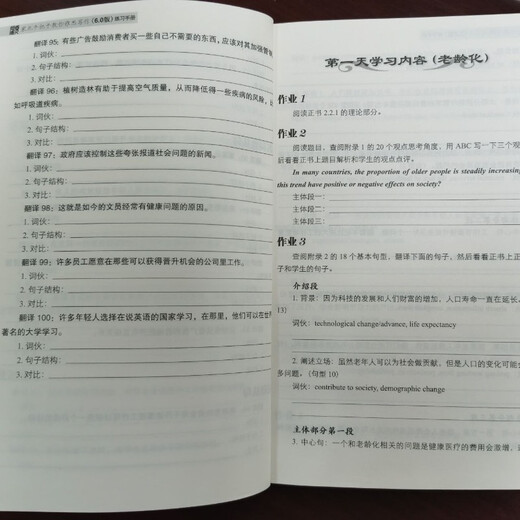 (6.0版) 练习手册
翻译 95：有些广告鼓励消费者买一些自己不需要的东西，应该对其加强管
1. 词伙：
2. 句子结构：
3. 对比：
翻译 96：植树造林有助于提高空气质量，从而降低得一些疾病的风险，
如呼吸道疾病。
1. 词伙：
2. 句子结构：
3. 对比：
翻译 97：政府应该控制这些夸张报道社会问题的新闻。
1. 词伙：
2. 句子结构：
3. 对比：
翻译 98：这就是如今的文员经常有健康问题的原因。
1. 词伙：
2. 句子结构：
3. 对比：
翻译 99：许多员工愿意在那些可以获得晋升机会的公司里工作。
1. 词伙：
2. 句子结构：
3. 对比：
翻译 100：许多年轻人选择在说英语的国家学习，在那里，他们可以在世
著名的大学学习。
1. 词伙：
2. 句子结构：
3. 对比：
第一天学习内容（老龄化）
作业 1
阅读正书 2.2.1 的理论部分。
作业 2
阅读题目，查阅附录 1 的 20 个观点思考角度，用 ABC 写一下三个观
后看看正书上题目解析和学生的观点点评。
In many countries, the proportion of older people is steadily increasing
this trend have positive or negative effects on society?
主体段一：
主体段二：
主体段三：
作业 3
查阅附录 2 的 18 个基本句型，翻译下面的句子，然后看看正书上正
子和学生的句子。
介绍段
1. 背景：因为科技的发展和人们财富的增加，人口寿命一直在延长。
13)
词伙：technological change/advance, life expectancy
2. 阐述立场：虽然老年人可以为社会做贡献，但是人口的变化可能会
多问题。（句型 10）
词伙：contribute to society, demographic change
主体部分第一段
3. 中心句：一个和老龄化相关的问题是健康医疗的费用会激增，